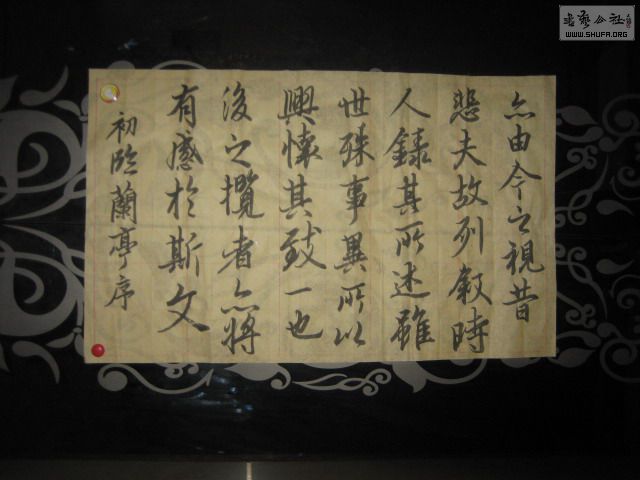 亦由今之視昔
悲夫故列叙時
人録其所述雖
世殊事異所以
興懷其致一也
後之攬者亦將
有感於斯文
初臨蘭亭序
书艺公社
WWW.SHUFA.ORG